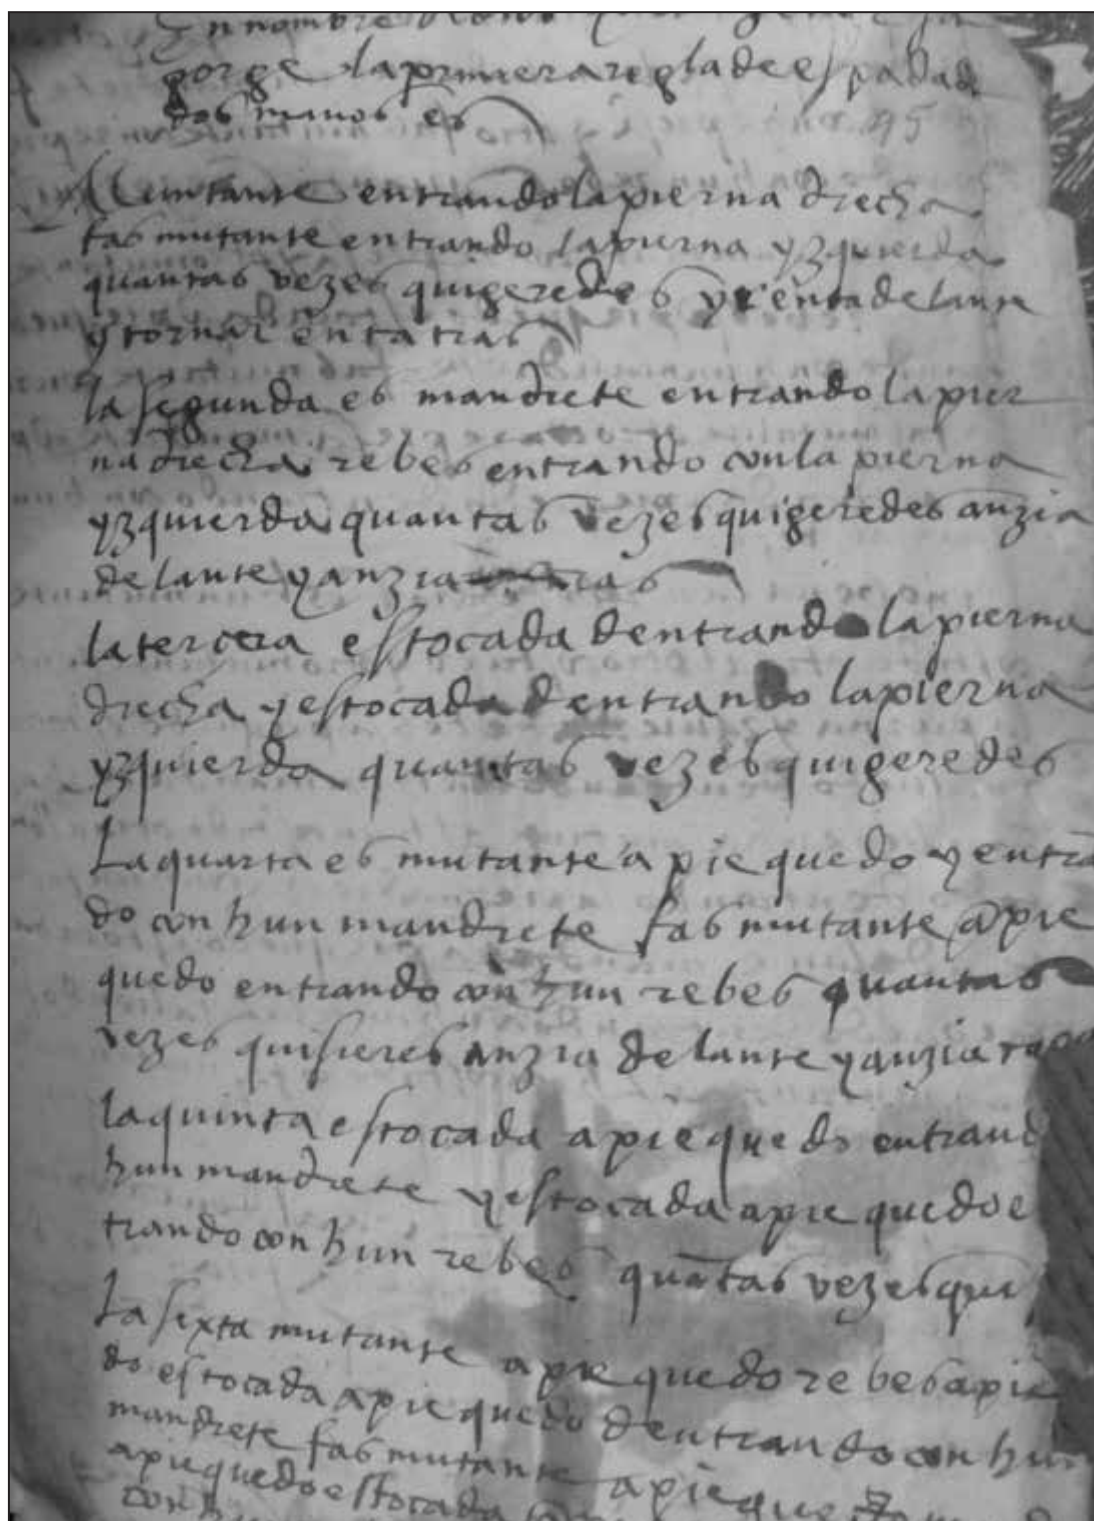 En nombre
gorge la primera regla de espada d
dos manos es
mutante entrando la pierna drecha
fas mutante entrando la pierna yzquierda
quantas vezes quigeredes yr enta delante
y tornar enta tras
la segunda es mandrete entrando la pier
na drecha rebes entrando con la pierna
yzquierda quantas vezes quigeredes anzia
delante y anzia tras
la tercera estocada dentrando la pierna
drecha y estocada dentrando la pierna
yzquierda quantas vezes quigeredes
La quarta es mutante a pie quedo y entrā
do con hun mandrete fas mutante a pie
quedo entrando con hun rebes quantas
vezes quisieres anzia delante y anzia
la quinta estocada a pie quedo entrand
hun mandrete y estocada a pie quedo e
trando con hun rebes quātas vezes qui
La sexta mutante a pie quedo rebes a pie
do estocada a pie quedo dentrando con hun
mandrete fas mutante a pie
a pie quedo estocada
con